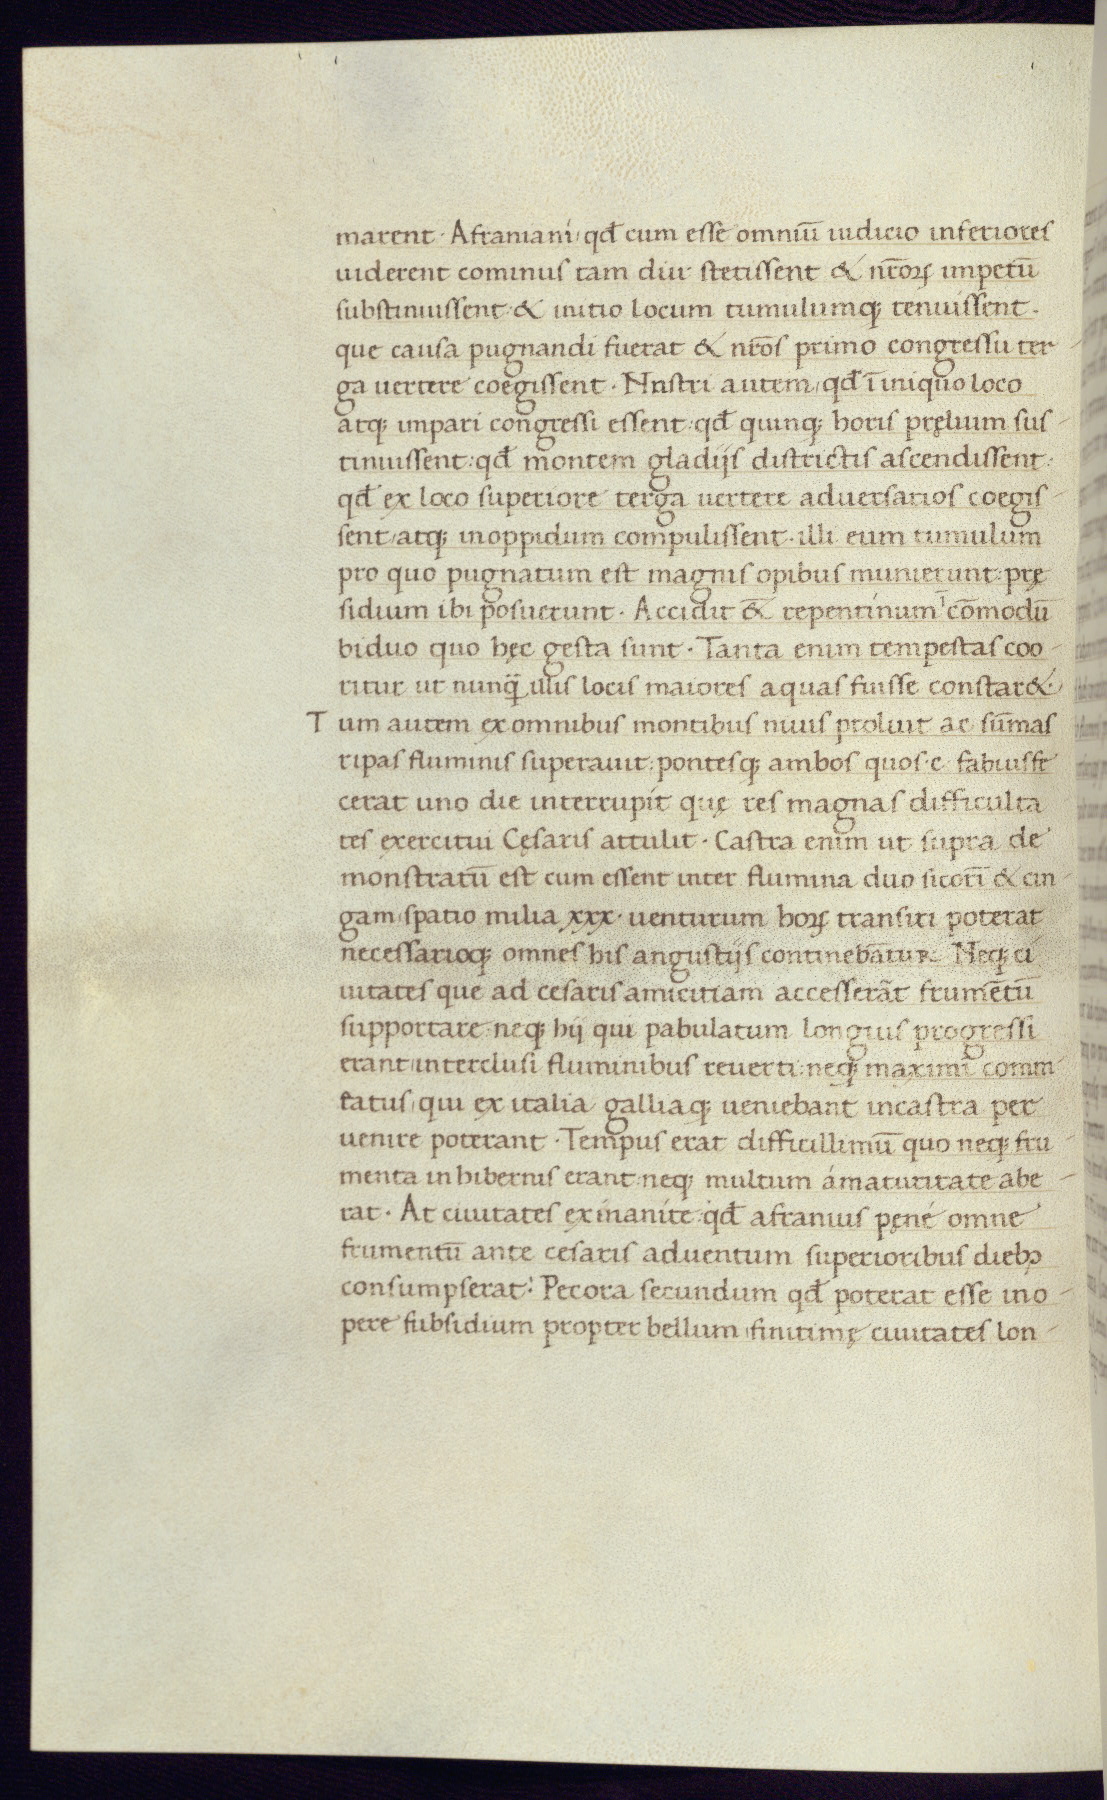 marent · Afraniani / qđ cum esse omniū iudicio inferiores
uiderent cominus tam diu stetissent & nr̄oꝝ impetū
substinuissent · & initio locum tumulumqꝫ tenuissent ·
que causa pugnandi fuerat & nr̄os primo congressu ter-
ga uertere coegissent · Nnstri autem / qđ ī iniquo loco
atqꝫ impari congressi essent : qđ quinqꝫ horis pręlium sus-
tinuissent : qđ montem gladijs districtis ascendissent :
qđ ex loco superiore terga uertere aduersarios coegis-
sent / atqꝫ inoppidum compulissent · illi eum tumulum
pro quo pugnatum est magnis opibus munierunt : prę
sidium ibi posuerunt · Accidit &̄ repentinum ı̄ cōmodū
biduo quo hęc gesta sunt · Tanta enim tempestas coo-
ritur ut nunq̄ꝫ illis locis maiores aquas fuisse constar&
Tum autem ex omnibus montibus niuis proluit ac sūmas
ripas fluminis superauit : pontesqꝫ ambos quos · c · fabius fe
cerat uno die interrupit quę res magnas difficulta
tes exercitui Cęsaris attulit · Castra enim ut supra de
monstratū est cum essent inter flumina duo sicorī & cin-
gam / spatio milia xxx · uenturum hoꝝ transiri poterat
necessarioqꝫ omnes his angustijs continebātur · Neqꝫ ci
uitates que ad cesaris amicitiam accesserāt frumētū
supportare : neqꝫ hij qui pabulatum longius progressi
erant / interclusi fluminibus reuerti : neqꝫ maximi comm
eatus / qui ex italia galliaqꝫ ueniebant incastra per
uenire poterant · Tempus erat difficillimū quo neqꝫ fru-
menta in hibernis erant : neqꝫ multum ámaturitate abe-
rat · At ciuitates exinanite : qđ afranius pęné omne
frumentū ante cesaris aduentum superioribus diebꝰ
consumpserat : Pecora secundum qđ poterat esse ino-
pere subsidium propter bellum / finitimę ciuitates lon-